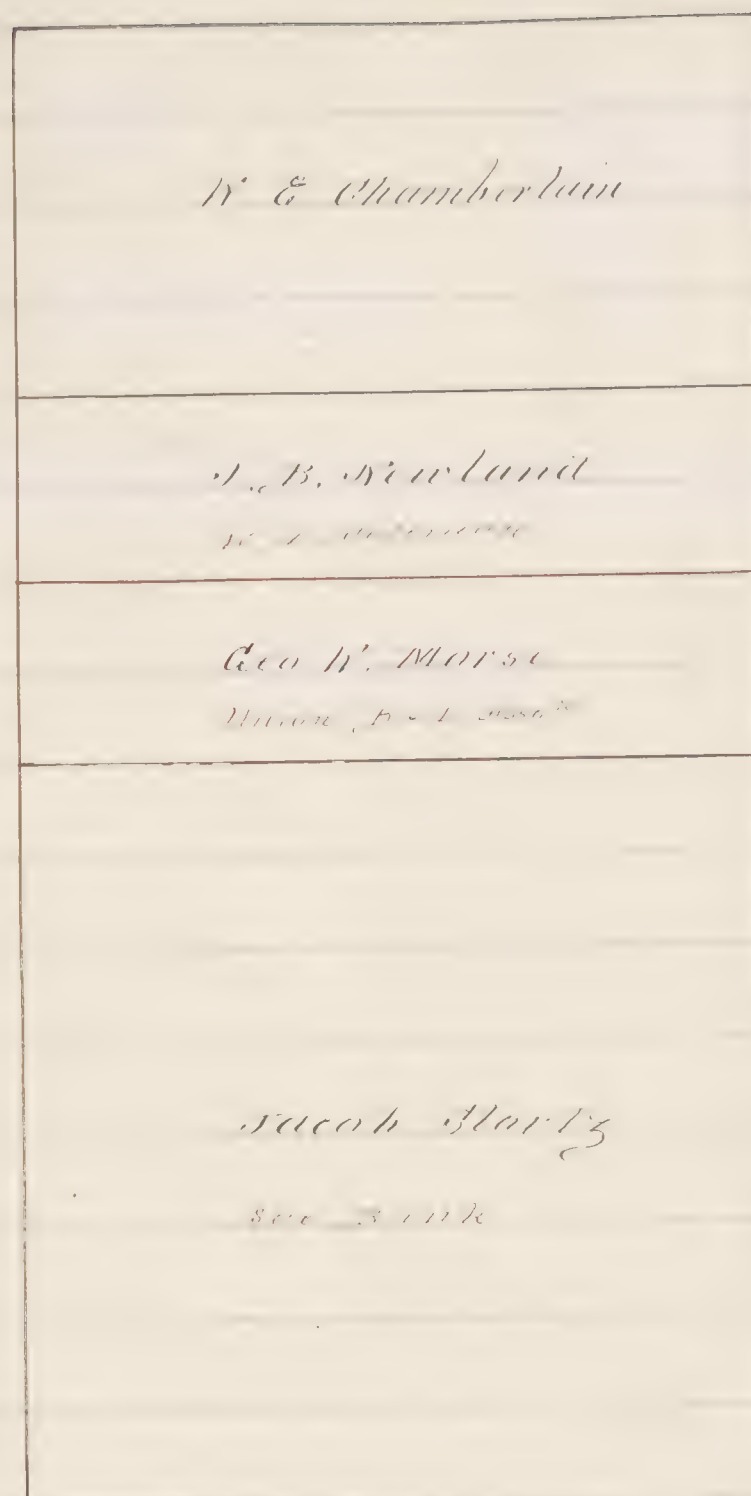 W E Chamberlain
J. B. Newland
Geo W. Morse
Union
Jacob Hortz
Sec Bank